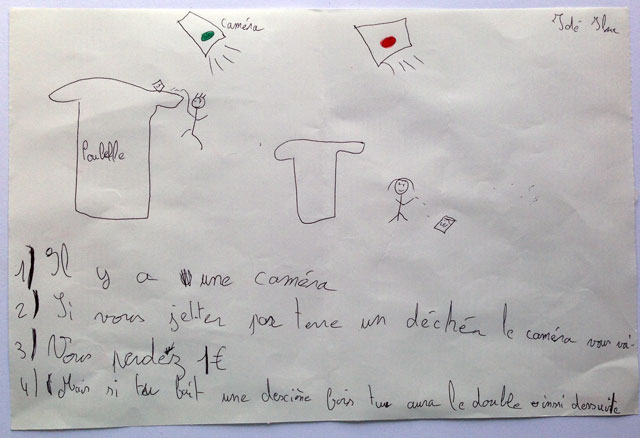 caméra
Poubelle
1) Il y a une caméra
2) Si vous jetter par terre un déchêt le caméra vous voi-
3) Vous perdez 1€
4) Mais si tu fait une descième fois tu aura le double ainsi dessuite